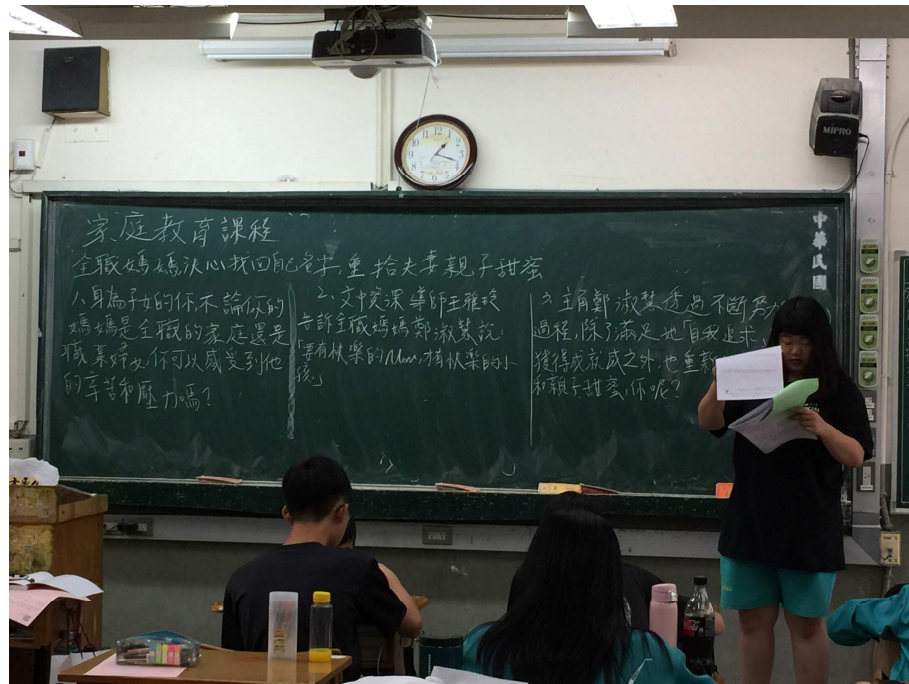 家庭教育課程
全職媽媽決心找回自己名字,重拾夫妻親子甜蜜
1、身為子女的你不論你的
媽媽是全職的家庭還是
職業婦女,你可以感受到他
的辛苦和壓力嗎?
2、文中資深導師王雅玲
告訴全職媽媽鄭淑慧說:
「要有快樂的Mom,才有快樂的小
孩」
3、主角鄭淑慧透過不斷努力
過程,除了滿足她自我追求
獲得成就感之外,也重
和親子甜蜜,你呢?
中華民國
MIPRO